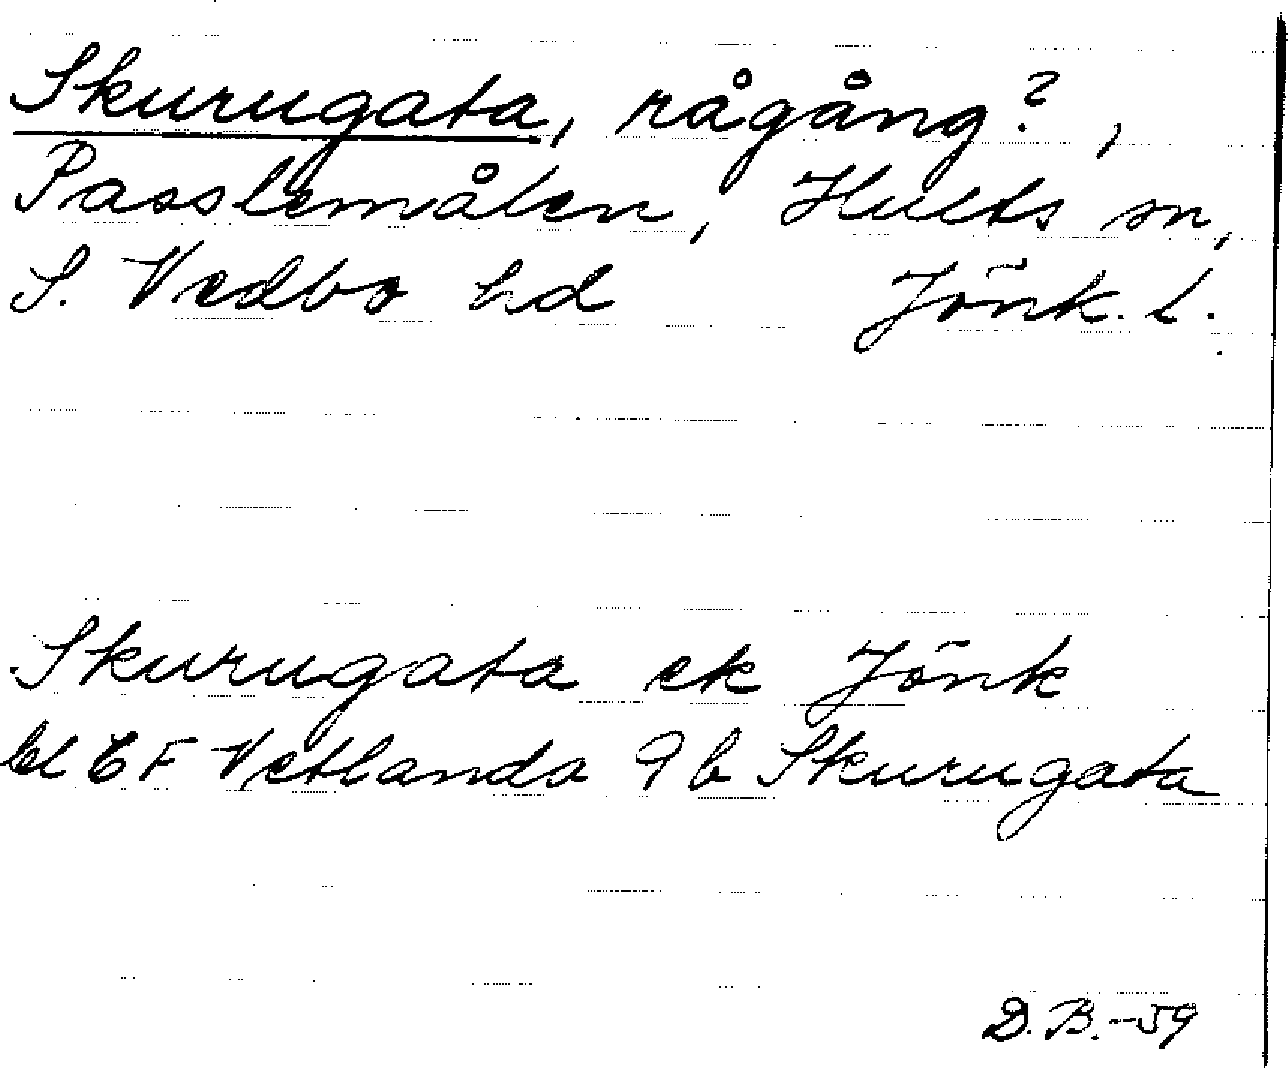 Skurugata, rågång?,
Passlemålen, Hults sn,
S. Vedbo hd Jönk. l.
Skurugata ek Jönk
bl 6F Vetlanda 9b Skurugata
D. B. -59